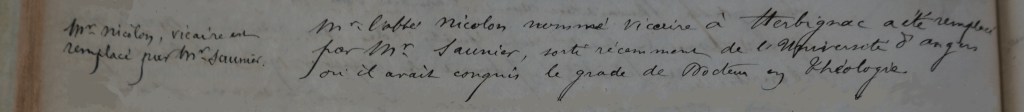 Mr Nicolon, vicaire est
remplacé par Mr Saunier.
Mr l'abbé Nicolon nommé vicaire à Herbignac a été remplacé
par Mr Saunier, sorti récemment de l'Université d'angers
où il avait conquis le grade de Docteur en Théologie